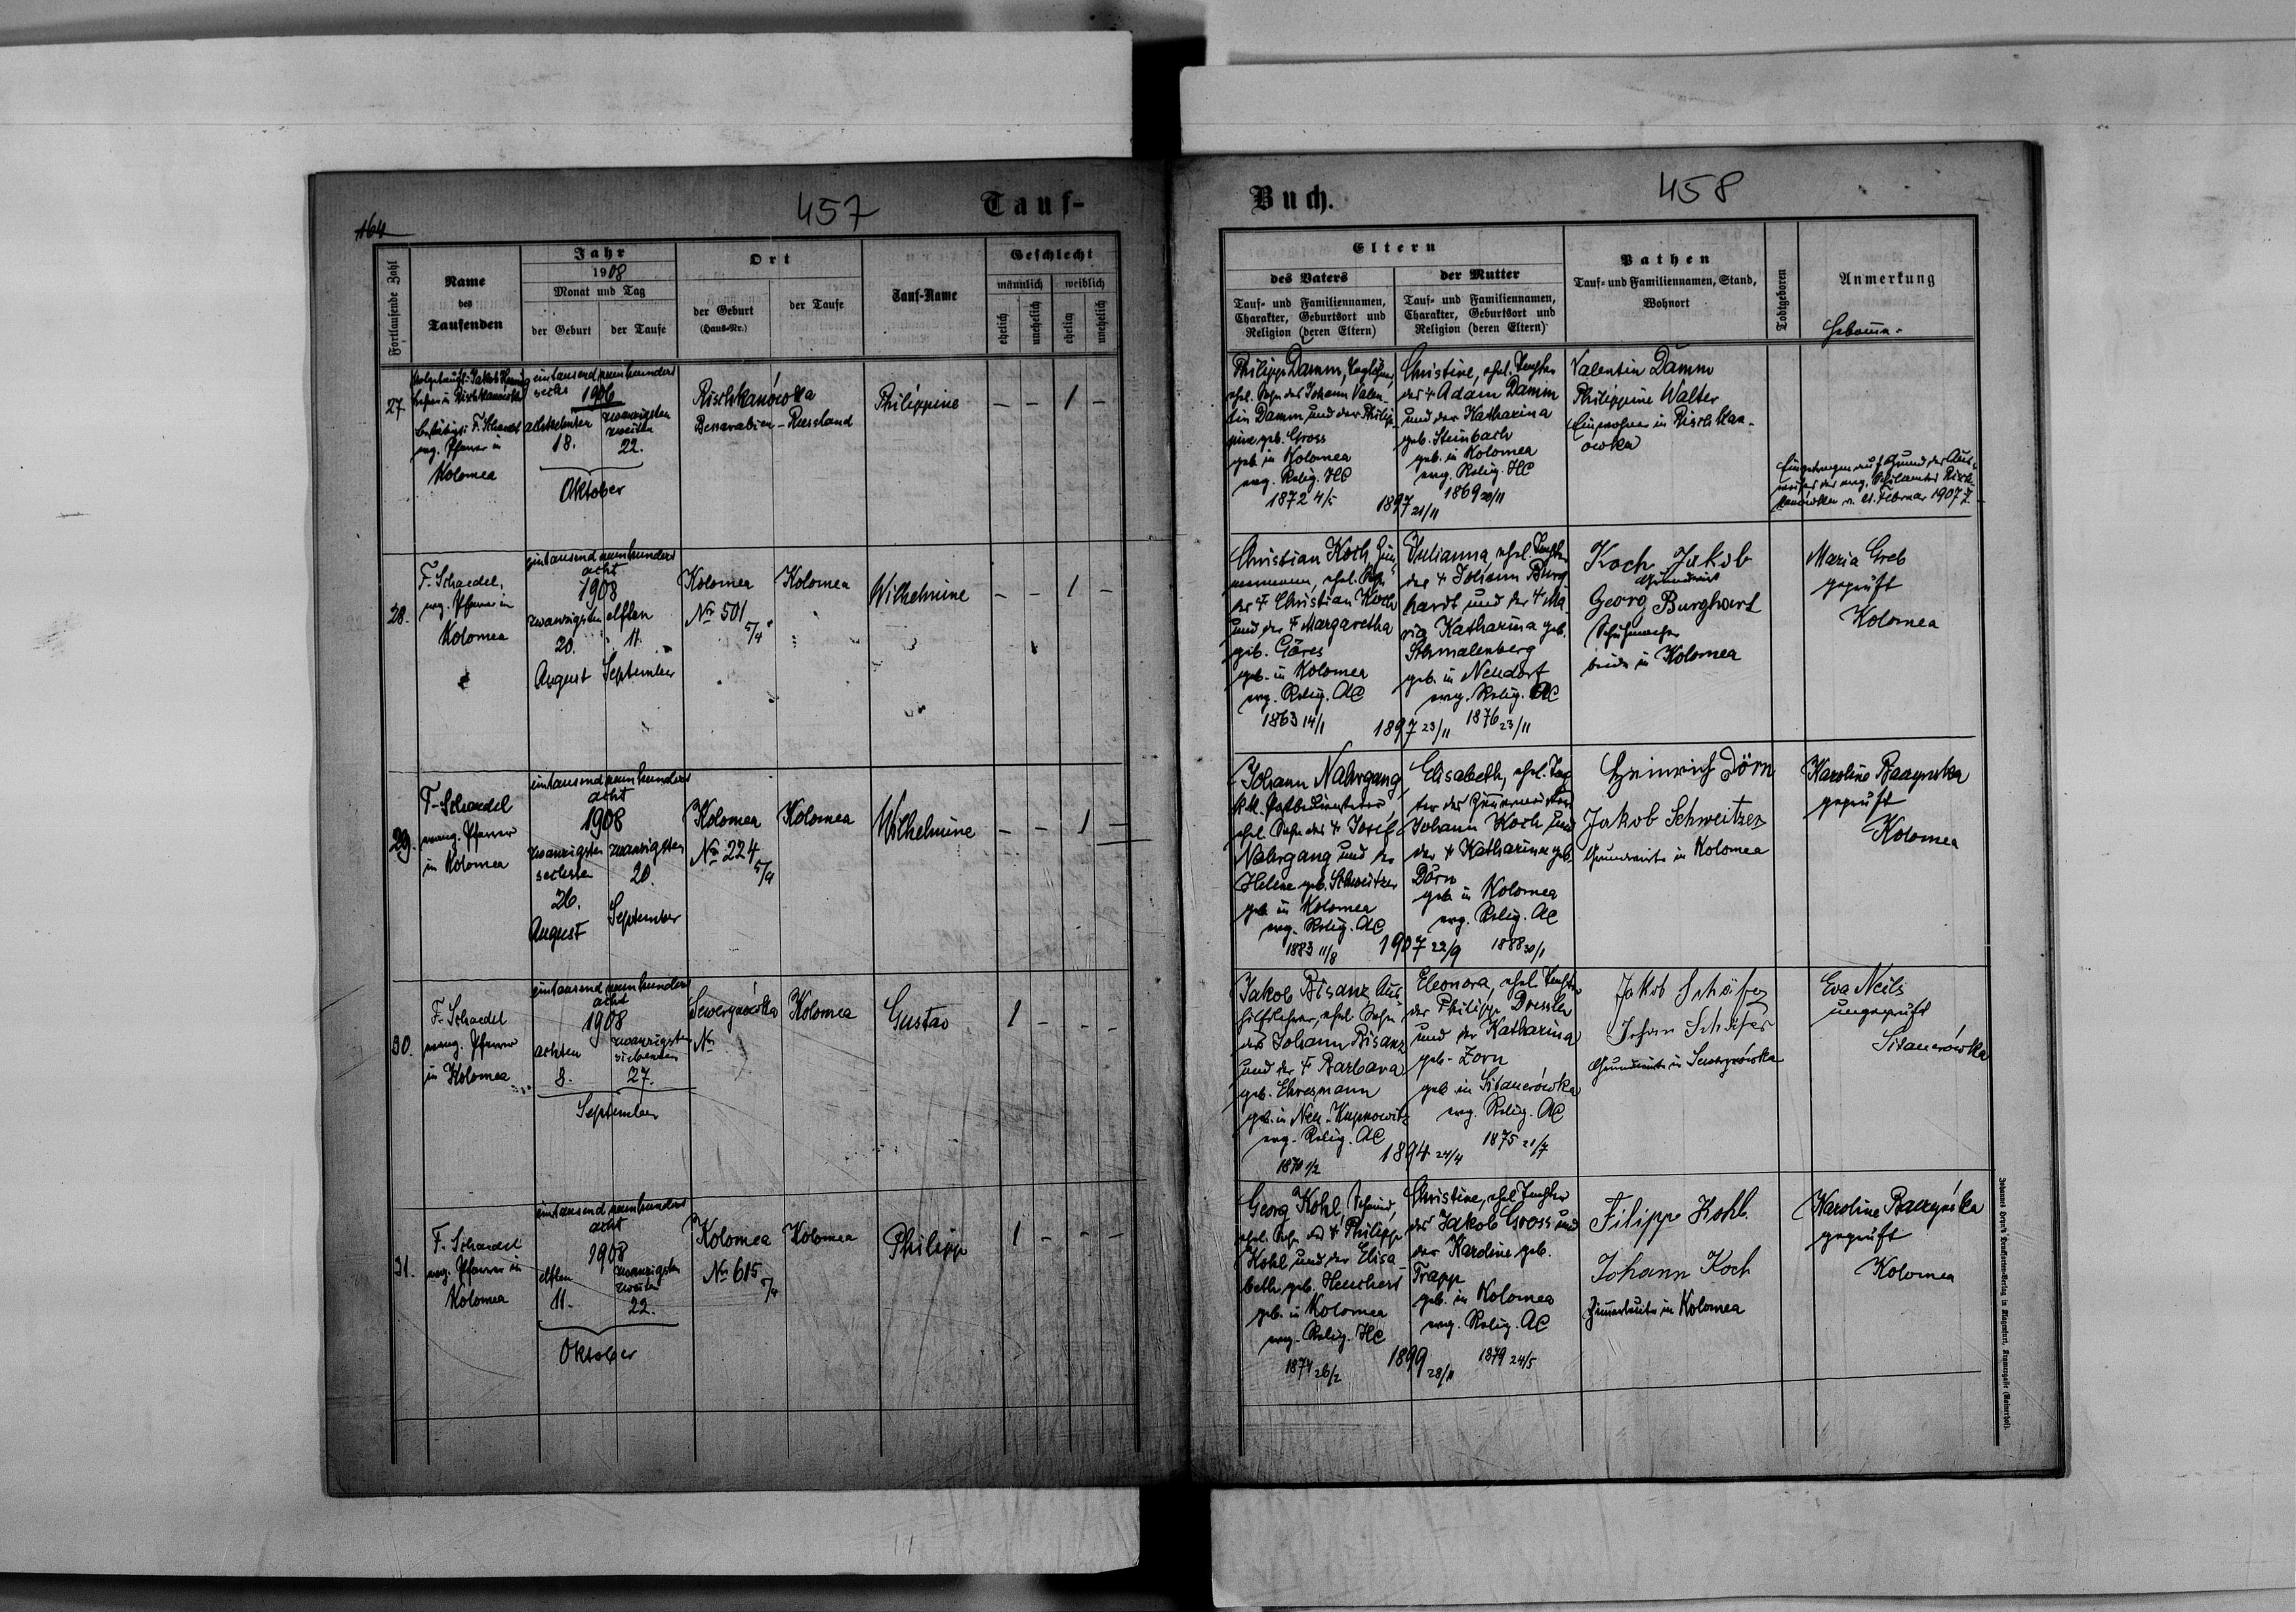 164
457
Tauf-
Fortlaufende Zahl
Name
des
Taufenden
Jahr
1908
Monat und Tag
der Geburt
der Taufe
Ort
der Geburt
(Haus-Nr.)
der Taufe
Tauf-Name
Geschlecht
männlich
weiblich
ehelich
unehelich
ehelich
unehelich
27.
F. Schaedel
evg. Pfarrer in
Kolomea
eintausend neunhundert
sechs 1906
achtzehnten
18.
zwanzigsten
zweiten
22.
Oktober
Rischkanówka
Bessarabien - Russland
Philippine
- - 1 -
28.
F. Schaedel,
evg. Pfarrer in
Kolomea
eintausend neunhundert
acht
1908
zwanzigsten elften
20. 11.
August September
Kolomea
Nr 501
5/4
Kolomea
Wilhelmine
- - 1 -
29.
F. Schaedel
evang. Pfarrer
in Kolomea
eintausend neunhundert
acht
1908
zwanzigsten zwanzigsten
sechsten
26. 20.
August September
Kolomea
Nr 224
5/4
Kolomea
Wilhelmine
- - 1 -
30.
F. Schaedel
evang. Pfarrer
in Kolomea
eintausend neunhundert
acht
1908
achten
8.
zwanzigsten
siebenten
27.
September
Sewerynówka
Nr
Kolomea
Gustav
1 - - -
31.
F. Schaedel
evg. Pfarrer in
Kolomea
eintausend neunhundert
acht
1908
elften
11.
zwanzigsten
zweiten
22.
Oktober
Kolomea
Nr 615
5/4
Kolomea
Philipp
1 - - -
Buch.
458
Eltern
des Vaters
Tauf- und Familiennamen,
Charakter, Geburtsort und
Religion (deren Eltern)
der Mutter
Tauf- und Familiennamen,
Charakter, Geburtsort und
Religion (deren Eltern)
Pathen
Tauf- und Familiennamen, Stand,
Wohnort
Todtgeboren
Anmerkung
Philipp Damm, Taglöhner,
ehel. Sohn des Johann Valen-
tin Damm und der Philip-
pine geb. Gross
geb. in Kolomea
evg. Relig. HC
1872 4/5
1897 21/11
Christine, ehel. Tochter
des + Adam Damm
und der Katharina
geb. Steinbach
geb. in Kolomea
evg. Relig. HC
1869 20/11
Valentin Damm
Philippine Walter
Einwohner in Rischkan-
ówka
Eingetragen auf Grund des Aus-
v. 21. Februar 1907
Christian Koch
ehel. Sohn
des + Christian Koch
und der + Margaretha
geb. Göres
geb. in Kolomea
evg. Relig. AC
1863 14/1
1897 23/11
Julianna, ehel. Tochter
des + Johann Burg-
hardt und der + Ma-
ria Katharina geb.
Schmalenberg
geb. in Neudorf
evg. Relig. AC
1876 23/11
Koch Jakob
Grundwirt
Georg Burghart
Schuhmacher
beide in Kolomea
Maria Greb
geprüft
Kolomea
Johann Nahrgang
k.k. Postbediensteter
ehel. Sohn des + Josef
Nahrgang und der
Helene geb. Schweitzer
geb. in Kolomea
evg. Relig. AC
1883 11/8
1907 22/9
Elisabeth, ehel. Toch-
ter des
Johann Koch und
der + Katharina geb.
Dörn
geb. in Kolomea
evg. Relig. AC
1888 30/1
Heinrich Dörn
Jakob Schweitzer
Grundwirte in Kolomea
Karoline Baczynska
geprüft
Kolomea
Jakob Bisanz Aus-
hilfslehrer, ehel. Sohn
des Johann Bisanz
und der + Barbara
geb. Ehresmann
geb. in Neu-Kupnowitz
evg. Relig. AC
1870 1/2
1894 24/4
Eleonora, ehel. Tochter
der Philipp Dressler
und der Katharina
geb. Zorn
geb. in Sitauerówka
evg. Relig. AC
1875 21/7
Jakob Schäfer
Johan Schäfer
Grundwirte in Sewerynówka
Eva Neils
ungeprüft
Sitauerówka
Georg Kohl, Schmied,
ehel. Sohn des + Philipp
Kohl und der Elisa-
beth geb. Heuchert
geb. in Kolomea
evg. Relig. HC
1874 26/2
1899 28/11
Christine, ehel. Tochter
des Jakob Gross und
der Karoline geb.
Trapp
geb. in Kolomea
evg. Relig. AC
1879 24/5
Filipp Kohl
Johann Koch
Zimmerleute in Kolomea
Karoline Baczyńska
geprüft
Kolomea